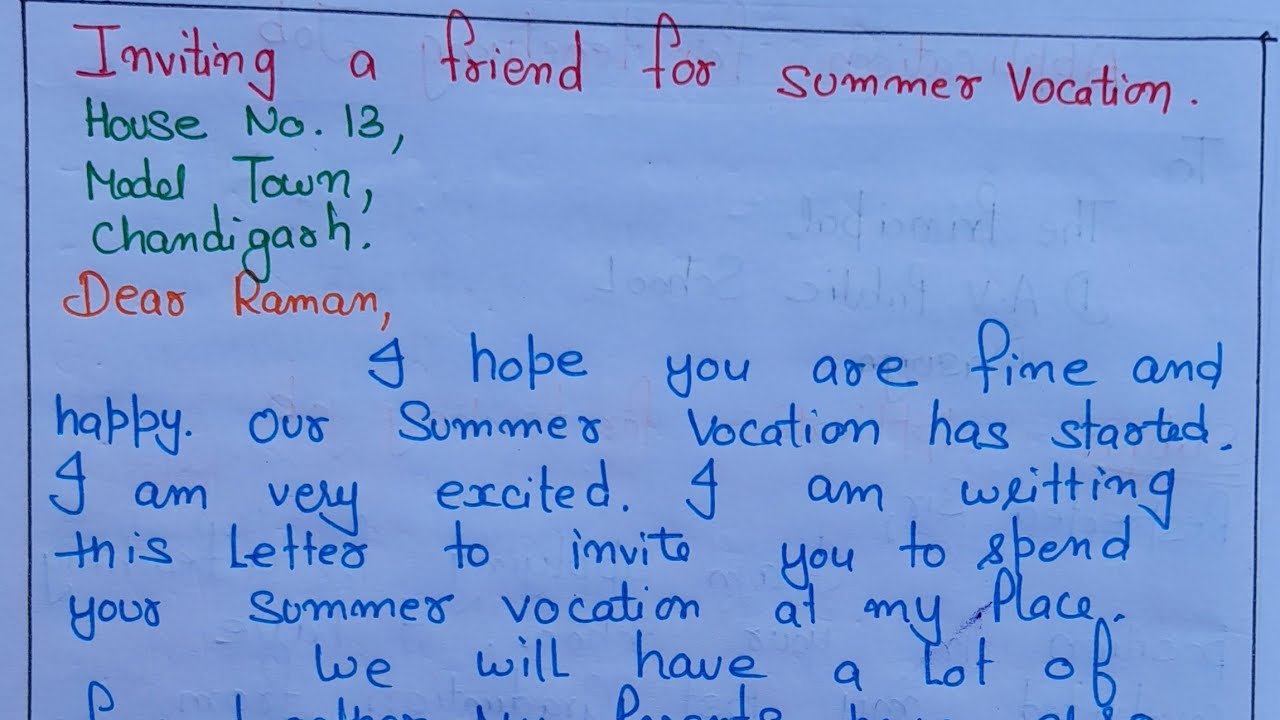 Inviting a friend for summer vocation.
House No. 13,
Model Town,
Chandigarh.
Dear Raman,
I hope you are fine and
happy. Our Summer Vocation has started.
I am very excited. I am writting
this Letter to invite you to spend
your summer vocation at my Place.
We will have a Lot of
To
The Principal
D.A.V Public School